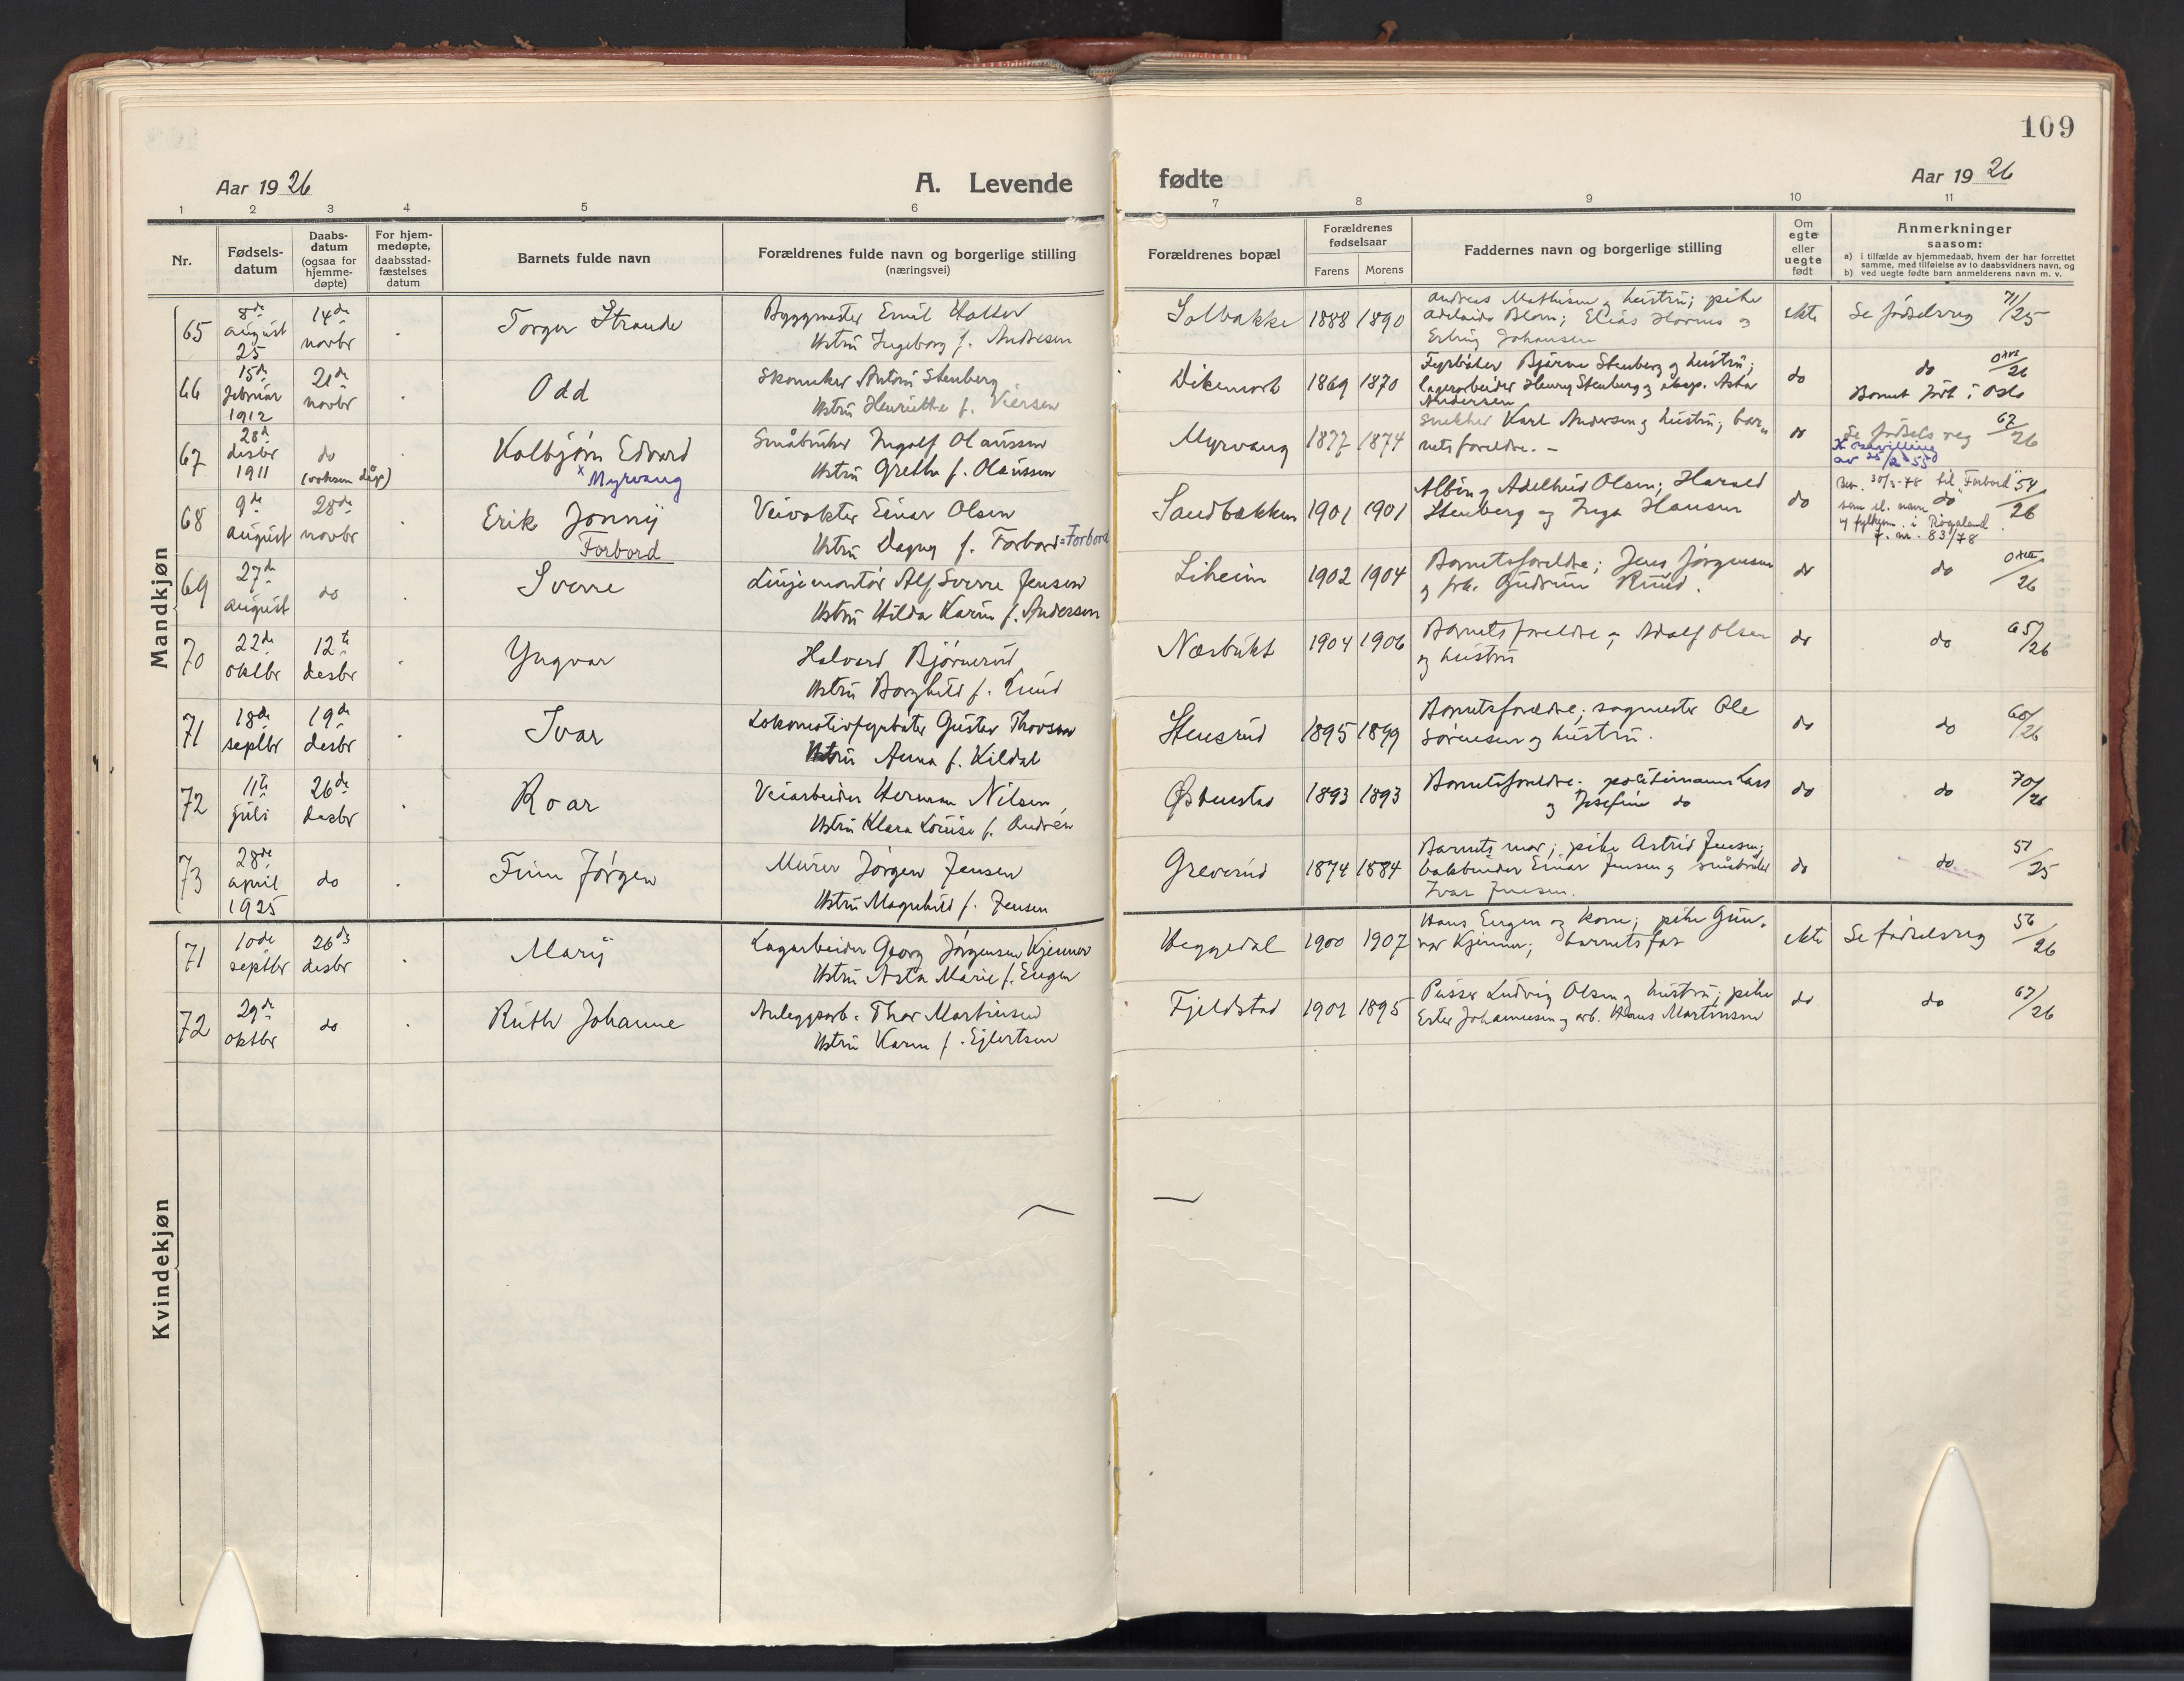 109
Aar 1926
A. Levende
fødte
Aar 1926
1 2 3 4 5 6
7 8 9 10 11
Nr.
Fødsels-
datum
Daabs-
datum
(ogsaa for
hjemme-
døpte)
For hjem-
medøpte,
daabsstad-
fæstelses
datum
Barnets fulde navn
Forældrenes fulde navn og borgerlige stilling
(næringsvei)
Forældrenes bopæl
Forældrenes
fødselsaar
Farens
Morens
Faddernes navn og borgerlige stilling
Om
egte
eller
uegte
født
Anmerkninger
saasom:
a) i tilfælde av hjemmedaab, hvem der har forrettet
samme, med tilføielse av to daabsvidners navn, og
b) ved uegte fødte barn anmelderens navn m. v.
Mandkjøn
65
8de
august
25
14de
novbr
Torger Strande
Byggmester Emil Holter
Hstru Ingeborg f. Andresen
Solbakke
1888 1890
Andreas Mathisen og hustru; pike
Adelaide Blom; Elias Hornes og
Erling Johansen
ekte
Se fødselsreg 71/25
66
15de
februar
1912
21de
novbr
Odd
Skomaker Anton Stenberg
Hstru Henriette f. Iversen
Dikemark
1869 1870
Fyrbøter Bjarne Stenberg og hustru;
lagerarbeider Henry Stenberg og eksp. Asta
Andersen
do
do
26
Barnet født i Oslo
67
28de
desbr
1911
do
(voksen dåp)
Kolbjørn Edvard
x Myrvang
Småbruker Ingolf Olaussen
Hstru Grethe f. Olaussen
Myrvang
1877 1874
Snekker Karl Andersen og hustru; bar-
nets foreldre. -
do
Se fødsels reg 67/26
x bevilling
av 25/2-55
68
9de
august
28de
novbr
Erik Jonny
Forbord
Veivokter Einar Olsen
Hstru Dagny f. Forbord = Forbord
Sandbakken
1901 1901
Albin og Adelheid Olsen; Harald
Stenberg og Inga Hansen
do
Bev. 30/3-78 til "Forbord"
som sl. navn do 54/26
av fylkesm. i Rogaland
j. nr. 83/78
69
27de
august
do
Sverre
Linjemontør Alf Sverre Jensen
Hstru Hilda Karin f. Andersen
Liheim
1902 1904
Barnets foreldre; Jens Jørgensen
og frk. Gudrun Ruud.
do
do
26
70
22de
oktbr
12te
desbr
Yngvar
Halvard Bjørnerud
Hstru Borghild f. Ruud
Næsbukt
1904 1906
Barnets foreldre og Adolf Olsen
og hustru
do
do 65/26
71
18de
septbr
19de
desbr
Ivar
Lokomotivfyrbøter Gustav Thorsen
Hstru Anna f. Kildal
Stensrud
1895 1899
Barnets foreldre; sagmester Ole
Sørensen og hustru.
do
do 60/26
72
11te
juli
26de
desbr
Roar
Veiarbeider Herman Nilsen,
Hstru Klara Louise f. Andrea
Østenstad
1893 1893
Barnets foreldre; politimann Lars
og Josefine do
do
do 70/26
73
28de
april
1925
do
Finn Jørgen
Murer Jørgen Jensen
Hstru Magnhild f. Jensen
Greverud
1874 1884
Barnets mor; pike Astrid Jensen;
Einar Jensen og småbruker
Ivar Jensen.
do
do 51/25
Kvindekjøn
71
10de
septbr
26de
desbr
Mary
Lagarbeider Georg Jørgensen Kjenner
Hstru Asta Marie f. Engen
Heggedal
1900 1907
Hans Engen og kone; pike Gun-
vor Kjenner; barnets far
ekte
Se fødselsreg 56/26
72
29de
oktbr
do
Ruth Johanne
Anleggsarb. Thor Martinsen
Hstru Karen f. Ejlertsen
Fjeldstad
1901 1895
Pusser Ludvig Olsen og hustru; pike
Ester Johannesen og arb. Hans Martinsen
do
do 67/26